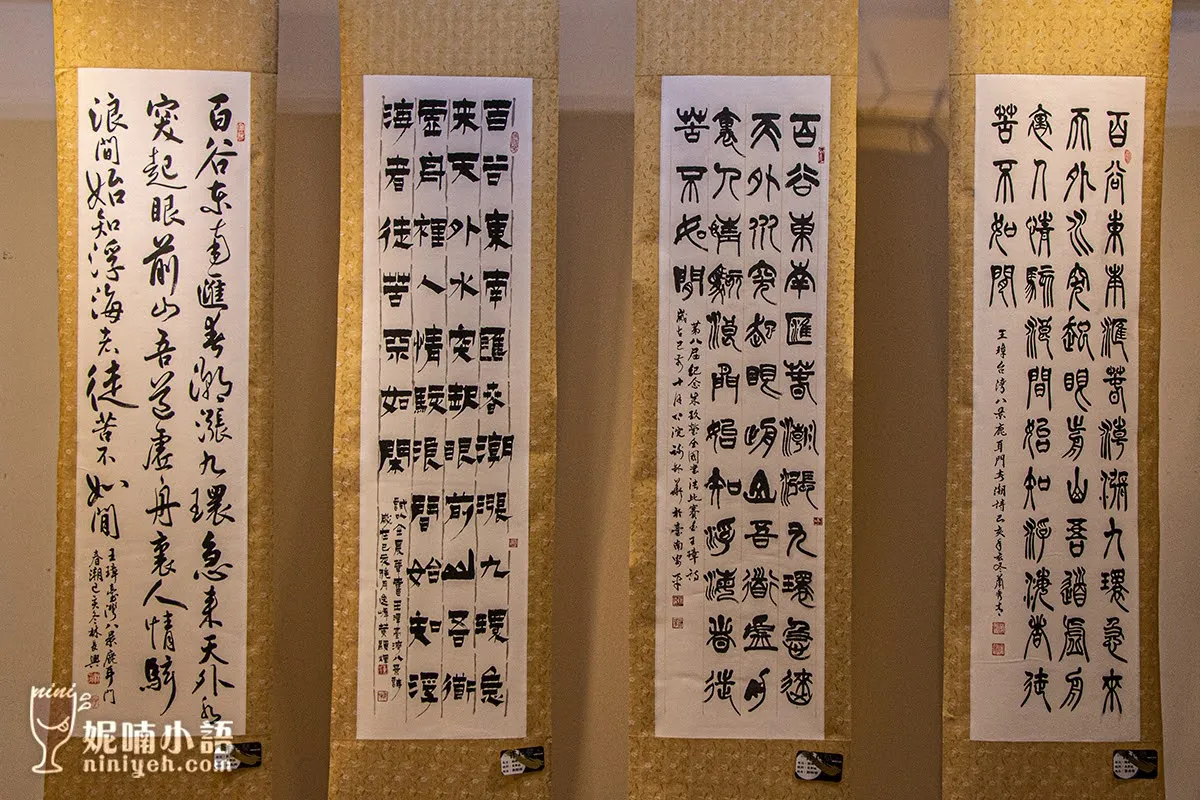 百谷東南匯春潮漲九環急來天外水
突起眼前山吾道虛舟裏人情駭
浪間始知浮海者徒苦不如閒
王璋臺灣八景鹿耳門
春潮己亥冬林長興
百谷東南匯春潮漲九環急
來天外水突起眼前山吾衜
虛舟裡人情駭浪間始知浮
海者徒苦不如閑
歲在己亥
百谷東南匯春潮漲九環急來
天外水突起眼前山吾道虛舟
裏人情駭浪間始知浮海者徒
苦不如閒
第八屆紀念朱玖瑩全國書法比賽錄王璋詩
歲在己亥十月於臺南安平
百谷東南匯春潮漲九環急來
天外水突起眼前山吾道虛舟
裏人情駭浪間始知浮海者徒
苦不如閒
王璋台灣八景鹿耳門春潮詩己亥年冬蕭秀
nini
妮喃小語
niniyeh.com